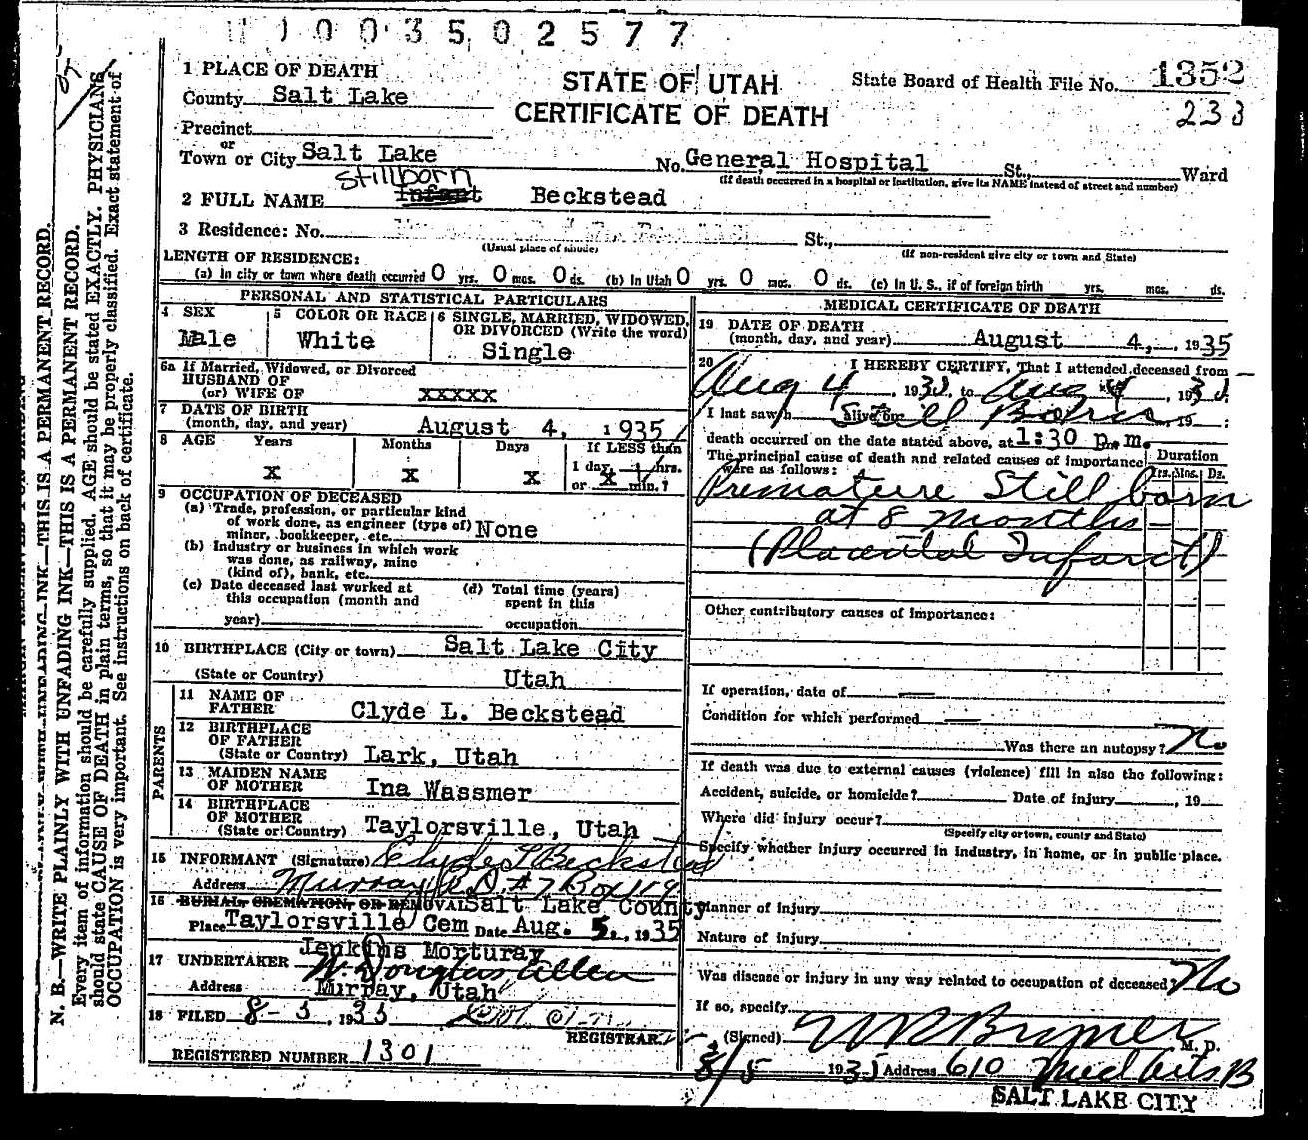 1003502577
1 PLACE OF DEATH
STATE OF UTAH
CERTIFICATE OF DEATH
State Board of Health File No. 1352
233
County Salt Lake
Precinct
or
Town or City Salt Lake No. General Hospital St., Ward
(If death occurred in a hospital or institution, give its NAME instead of street and number)
Stillborn
2 FULL NAME Infant Beckstead
3 Residence: No. St.,
(Usual place of abode) (If non-resident give city or town and State)
LENGTH OF RESIDENCE:
(a) In city or town where death occurred 0 yrs. 0 mos. 0 ds. (b) In Utah 0 yrs. 0 mos. 0 ds. (c) In U. S., if of foreign birth yrs. mos. ds.
PERSONAL AND STATISTICAL PARTICULARS
4 SEX
Male
5 COLOR OR RACE
White
6 SINGLE, MARRIED, WIDOWED, OR DIVORCED (Write the word)
Single
6a If Married, Widowed, or Divorced
HUSBAND OF
(or) WIFE OF XXXXX
7 DATE OF BIRTH
(month, day, and year) August 4, 1935
8 AGE Years Months Days If LESS than
X X X 1 day, hrs.
or X min.?
9 OCCUPATION OF DECEASED
(a) Trade, profession, or particular kind
of work done, as engineer (type of) None
miner, bookkeeper, etc.
(b) Industry or business in which work
was done, as railway, mine
(kind of), bank, etc.
(c) Date deceased last worked at (d) Total time (years)
this occupation (month and spent in this
year) occupation
10 BIRTHPLACE (City or town) Salt Lake City
(State or Country) Utah
PARENTS
11 NAME OF
FATHER Clyde L. Beckstead
12 BIRTHPLACE
OF FATHER
(State or Country) Lark, Utah
13 MAIDEN NAME
OF MOTHER Ina Wassmer
14 BIRTHPLACE
OF MOTHER
(State or Country) Taylorsville, Utah
15 INFORMANT (Signature) Clyde L Beckstead
Address Murray R.D. #7 Box 119
16 BURIAL, CREMATION, OR REMOVAL Salt Lake County
Place Taylorsville Cem Date Aug. 5, 1935
Jenkins Morturay
17 UNDERTAKER W. Douglas Allen
Address Murray, Utah
18 FILED 8-5, 1935
REGISTRAR
REGISTERED NUMBER 1301
MEDICAL CERTIFICATE OF DEATH
19 DATE OF DEATH
(month, day, and year) August 4, 1935
20 I HEREBY CERTIFY, That I attended deceased from
Aug 4, 1935, to Aug 4, 1935.
I last saw h alive on Still Born, 19 ;
death occurred on the date stated above, at 1:30 p.m.
The principal cause of death and related causes of importance Duration
were as follows: Yrs. Mos. Ds.
Premature Still born
at 8 months
(Placental Infarct)
Other contributory causes of importance:
If operation, date of
Condition for which performed
Was there an autopsy? No
If death was due to external causes (violence) fill in also the following:
Accident, suicide, or homicide? Date of injury , 19
Where did injury occur?
(Specify city or town, county and State)
Specify whether injury occurred in industry, in home, or in public place.
Manner of injury
Nature of injury
Was disease or injury in any way related to occupation of deceased? No
If so, specify
(Signed) M. D.
8/5 1935 Address 610 Med Arts B
SALT LAKE CITY
N. B.—WRITE PLAINLY WITH UNFADING INK—THIS IS A PERMANENT RECORD.
Every item of information should be carefully supplied. AGE should be stated EXACTLY. PHYSICIANS
should state CAUSE OF DEATH in plain terms, so that it may be properly classified. Exact statement of
OCCUPATION is very important. See instructions on back of certificate.